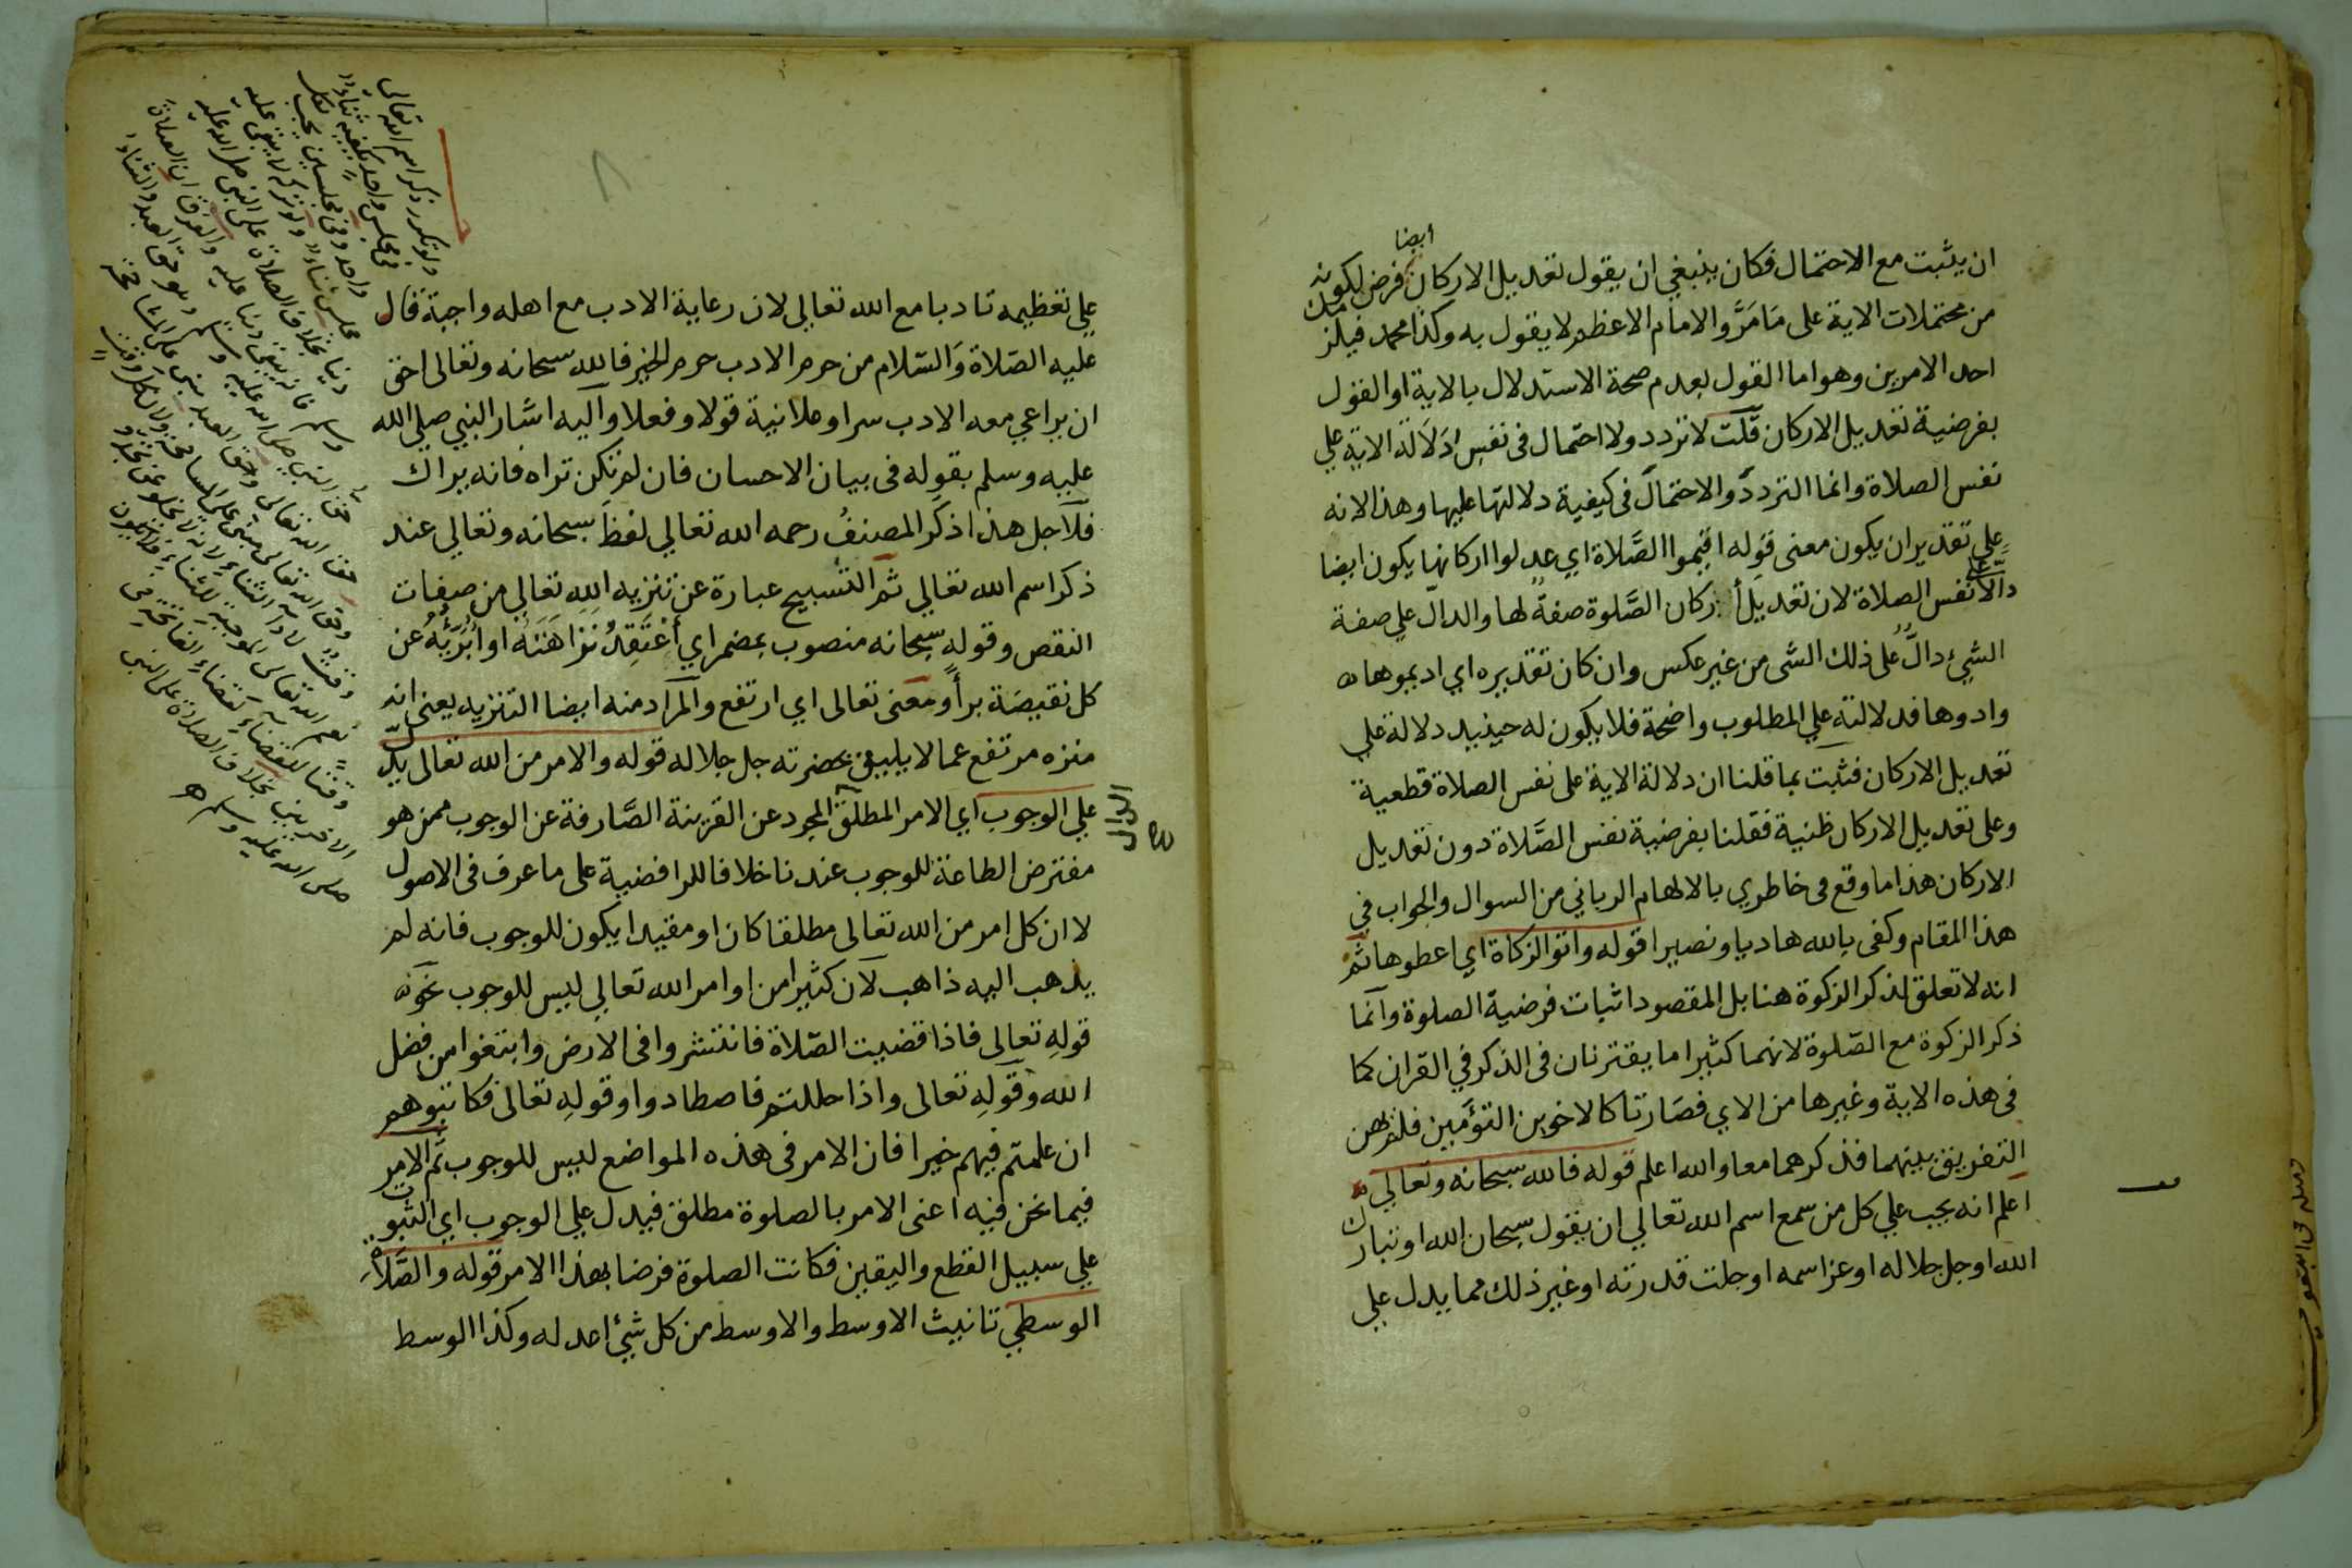 ان يثبت مع الاحتمال فكان ينبغي ان يقول تعديل الاركان ايضا فرض لكونه
من محتملات الاية على مَا مَرَّ والامام الاعظم لا يقول به وكذا محمد فيلزمك
احد الامرين وهو اما القول بعدم صحة الاستدلال بالاية او القول
بفرضية تعديل الاركان قلت لا تردد ولا احتمال فى نفس دَلَالة الاية علي
نفس الصلاة وانما التردد والاحتمال فى كيفية دلالتها عليها وهذا لانه
علي تقدير ان يكون معنى قوله اقيموا الصَّلاة اي عدلوا اركانها يكون ايضا
دالّا على نفس الصلاة لان تعديل أركان الصَّلوة صفةٌ لها والدالّ علي صفة
الشيئ دالٌّ على ذلك الشى من غير عكس وان كان تقديره اي اديموها
وادوها فدلالته علي المطلوب واضحة فلا يكون له حينئيد دلالة علي
تعديل الاركان فثبت بما قلنا ان دلالة الاية على نفس الصلاة قطعية
وعلى تعديل الاركان ظنية فقلنا بفرضية نفس الصَّلاة دون تعديل
الاركان هذا ما وقع فى خاطري بالالهام الرباني من السوال والجواب في
هذا المقام وكفى بالله هاديا ونصيرا قوله واتوا الزكاة اي اعطوها ثم
انه لا تعلق لذكر الزكوة هنا بل المقصود اثبات فرضية الصلوة وانما
ذكر الزكوة مع الصّلوة لانهما كثيرا ما يقترنان فى الذكر في القران كما
فى هذه الاية وغيرها من الاي فصَارتا كالاخوين التؤَمين فلم
التفريق بينهما فذكرهما معا والله اعلم قوله فالله سبحانه وتعالي
اعلم انه يجب علي كل من سمع اسم الله تعالي ان يقول سبحان الله او تبارك
الله او جل جلاله او عز اسمه او جلت قدرته او غير ذلك مما يدل علي
علي تعظيمه تادبا مع الله تعالي لان رعاية الادب مع اهله واجبة قال
عليه الصّلاة وَالسّلام من حرم الادب حرم الخير فالله سبحانه وتعالى احق
ان يراعي معه الادب سرا وعلانية قولا وفعلا واليه اشار النبي صلي الله
عليه وسلم بقوله فى بيان الاحسان فان لم تكن تراه فانه يراك
فلاجل هذا ذكر المصنفُ رحمه الله تعالي لفظَ سبحانه وتعالي عند
ذكر اسم الله تعالي ثم التسبيح عبارة عن تنزيه الله تعالي من صفات
النقص وقوله سبحانه منصوب بمضمر اي أَعْتَقِدُ نَزَاهَتَهُ او أُبَرِّئُهُ عن
كل نقيصَة برأً ومعنى تعالى اي ارتفع والمراد منه ايضا التنزيه يعنى انه
منزه مرتفع عما لا يليق بحضرته جل جلاله قوله والامر من الله تعالى يدلّ
علي الوجوب اي الامر المطلق المجرد عن القرينة الصَّارفة عن الوجوب ممن هو
الدال
صح
مفترض الطاعة للوجوب عندنا خلافا للرافضية على ما عرف فى الاصول
لا ان كل امر من الله تعالى مطلقا كان او مقيدا يكون للوجوب فانه لم
يذهب اليه ذاهب لان كثيرا من اوامر الله تعالي ليس للوجوب نحو
قوله تعالى فاذا قضيت الصّلاة فانتشروا فى الارض وابتغوا من فضل
الله وقوله تعالى واذا حللتم فاصطادوا وقوله تعالى فكاتبوهم
ان علمتم فيهم خيرا فان الامر فى هذه المواضع ليس للوجوب ثم الامر
فيما نحن فيه اعنى الامر بالصلوة مطلق فيدل علي الوجوب اي الثبوت
علي سبيل القطع واليقين فكانت الصلوة فرضا بهذا الامر قوله والصَّلاةِ
الوسطي تانيث الاوسط والاوسط من كل شيئ اعدله وكذا الوسط
ولو تكرر ذكر اسم الله تعالى
فى مجلس واحد يكفيه ثناء
واحد وفى مجلسين يجب لكل
مجلس ثناء ولو تركه لا يبقى عليه
دينا بخلاف الصلاة على النبى صلى الله عليه
وسلم فانه يبقى دينا عليه والفرق ان الصلاة
صلى الله عليه وسلم